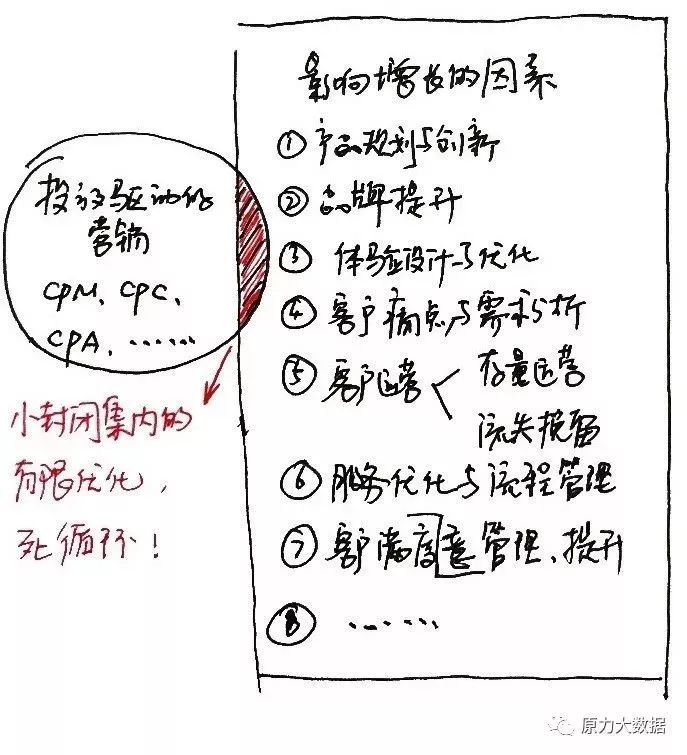 影响增长的因素
① 产品规划与创新
② 品牌提升
③ 体验设计与优化
④ 客户痛点与需求分析
⑤ 客户运营
存量运营
流失挽留
⑥ 服务优化与流程管理
⑦ 客户满度意管理、提升
⑧ ……
投放驱动的
营销
CPM、CPC、
CPA、……
小封闭集内的
有限优化，
死循环！
原力大数据